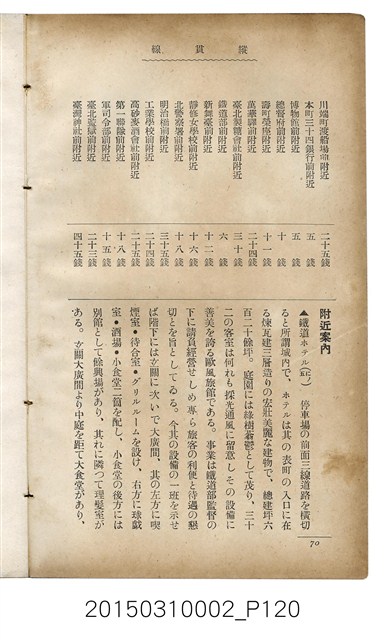 縱貫線
川端町渡船場前附近 二十五錢
本町三十四銀行前附近 五錢
博物館前附近 五錢
總督府前附近 十錢
壽町榮座附近 十一錢
萬華驛前附近 二十四錢
臺北製糖會社前附近 三十錢
鐵道部前附近 六錢
新舞臺前附近 十二錢
靜修女學校前附近 十六錢
北警察署前附近 十八錢
明治橋前附近 三十五錢
工業學校前附近 二十四錢
高砂麥酒會社前附近 二十五錢
第一聯隊前附近 十八錢
軍司令部前附近 十五錢
臺北監獄前附近 二十三錢
臺灣神社前附近 四十五錢
附近案內
▲鐵道ホテル 停車場の前面三線道路を橫切
ると所謂城內で、ホテルは其の表町の入口に在
る煉瓦建三層造りの宏壯美麗な建物で、總建坪六
百二十餘坪。庭園には綠樹蓊鬱として茂り、三十
二の客室は何れも採光通風に留意しその設備に
善美を誇る歐風旅館である。事業は鐵道部監督の
下に請負經營せしめ專ら旅客の利便と待遇の懇
切とを旨としてゐる。今其の設備の一班を示せ
ば階下には玄關に次いで大廣間、其の左方に喫
煙室・待合室・グリルルームを設け、右方に球戲
室・酒場・小食堂二箇を配し、小食堂の後方には
別館として餘興場があり、其れに隣つて理髮室が
ある。玄關大廣間より中庭を距て大食堂があり、
70
20150310002_P120